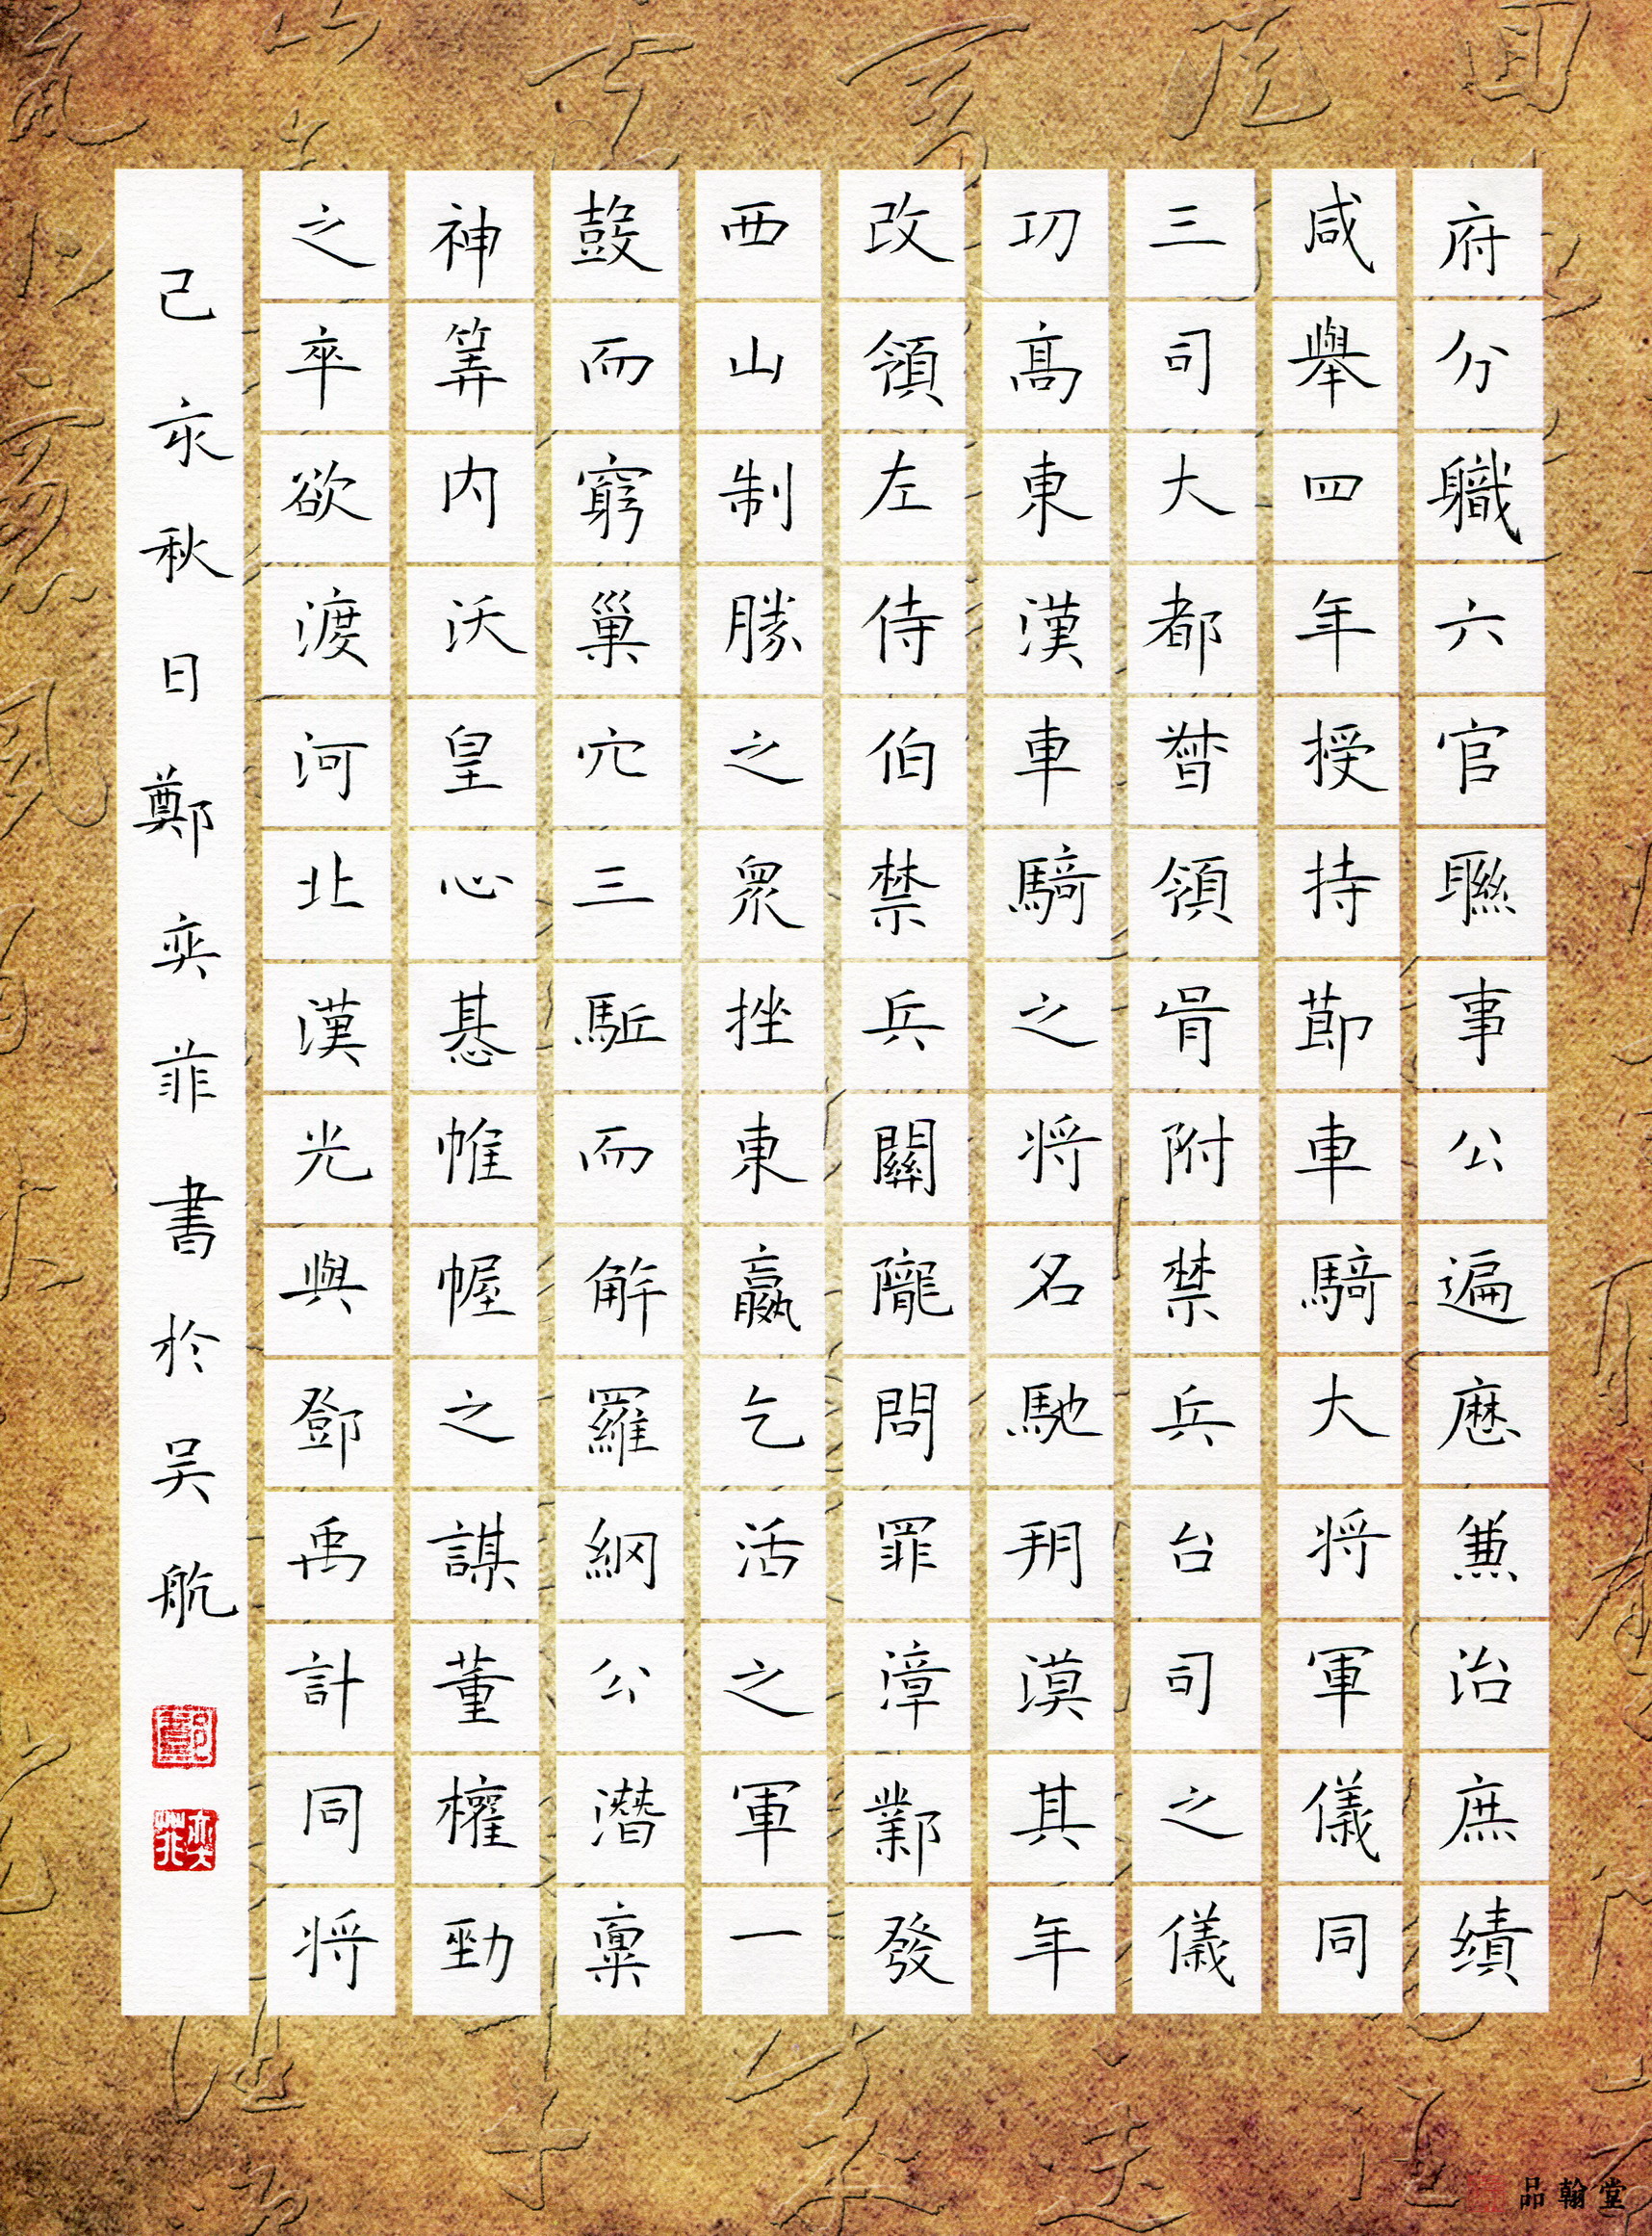 府分職六官聯事公遍歷兼治庶績
咸舉四年授持節車騎大將軍儀同
三司大都督領胥附禁兵台司之儀
功高東漢車騎之將名馳朔漠其年
改領左侍伯禁兵關隴問罪漳鄴發
西山制勝之眾挫東嬴乞活之軍一
鼓而窮巢穴三駈而解羅網公潛稟
神筭內沃皇心惎帷幄之謀董權勁
之卒欲渡河北漢光與鄧禹計同將
己亥秋日鄭奕菲書於吴航
品翰堂